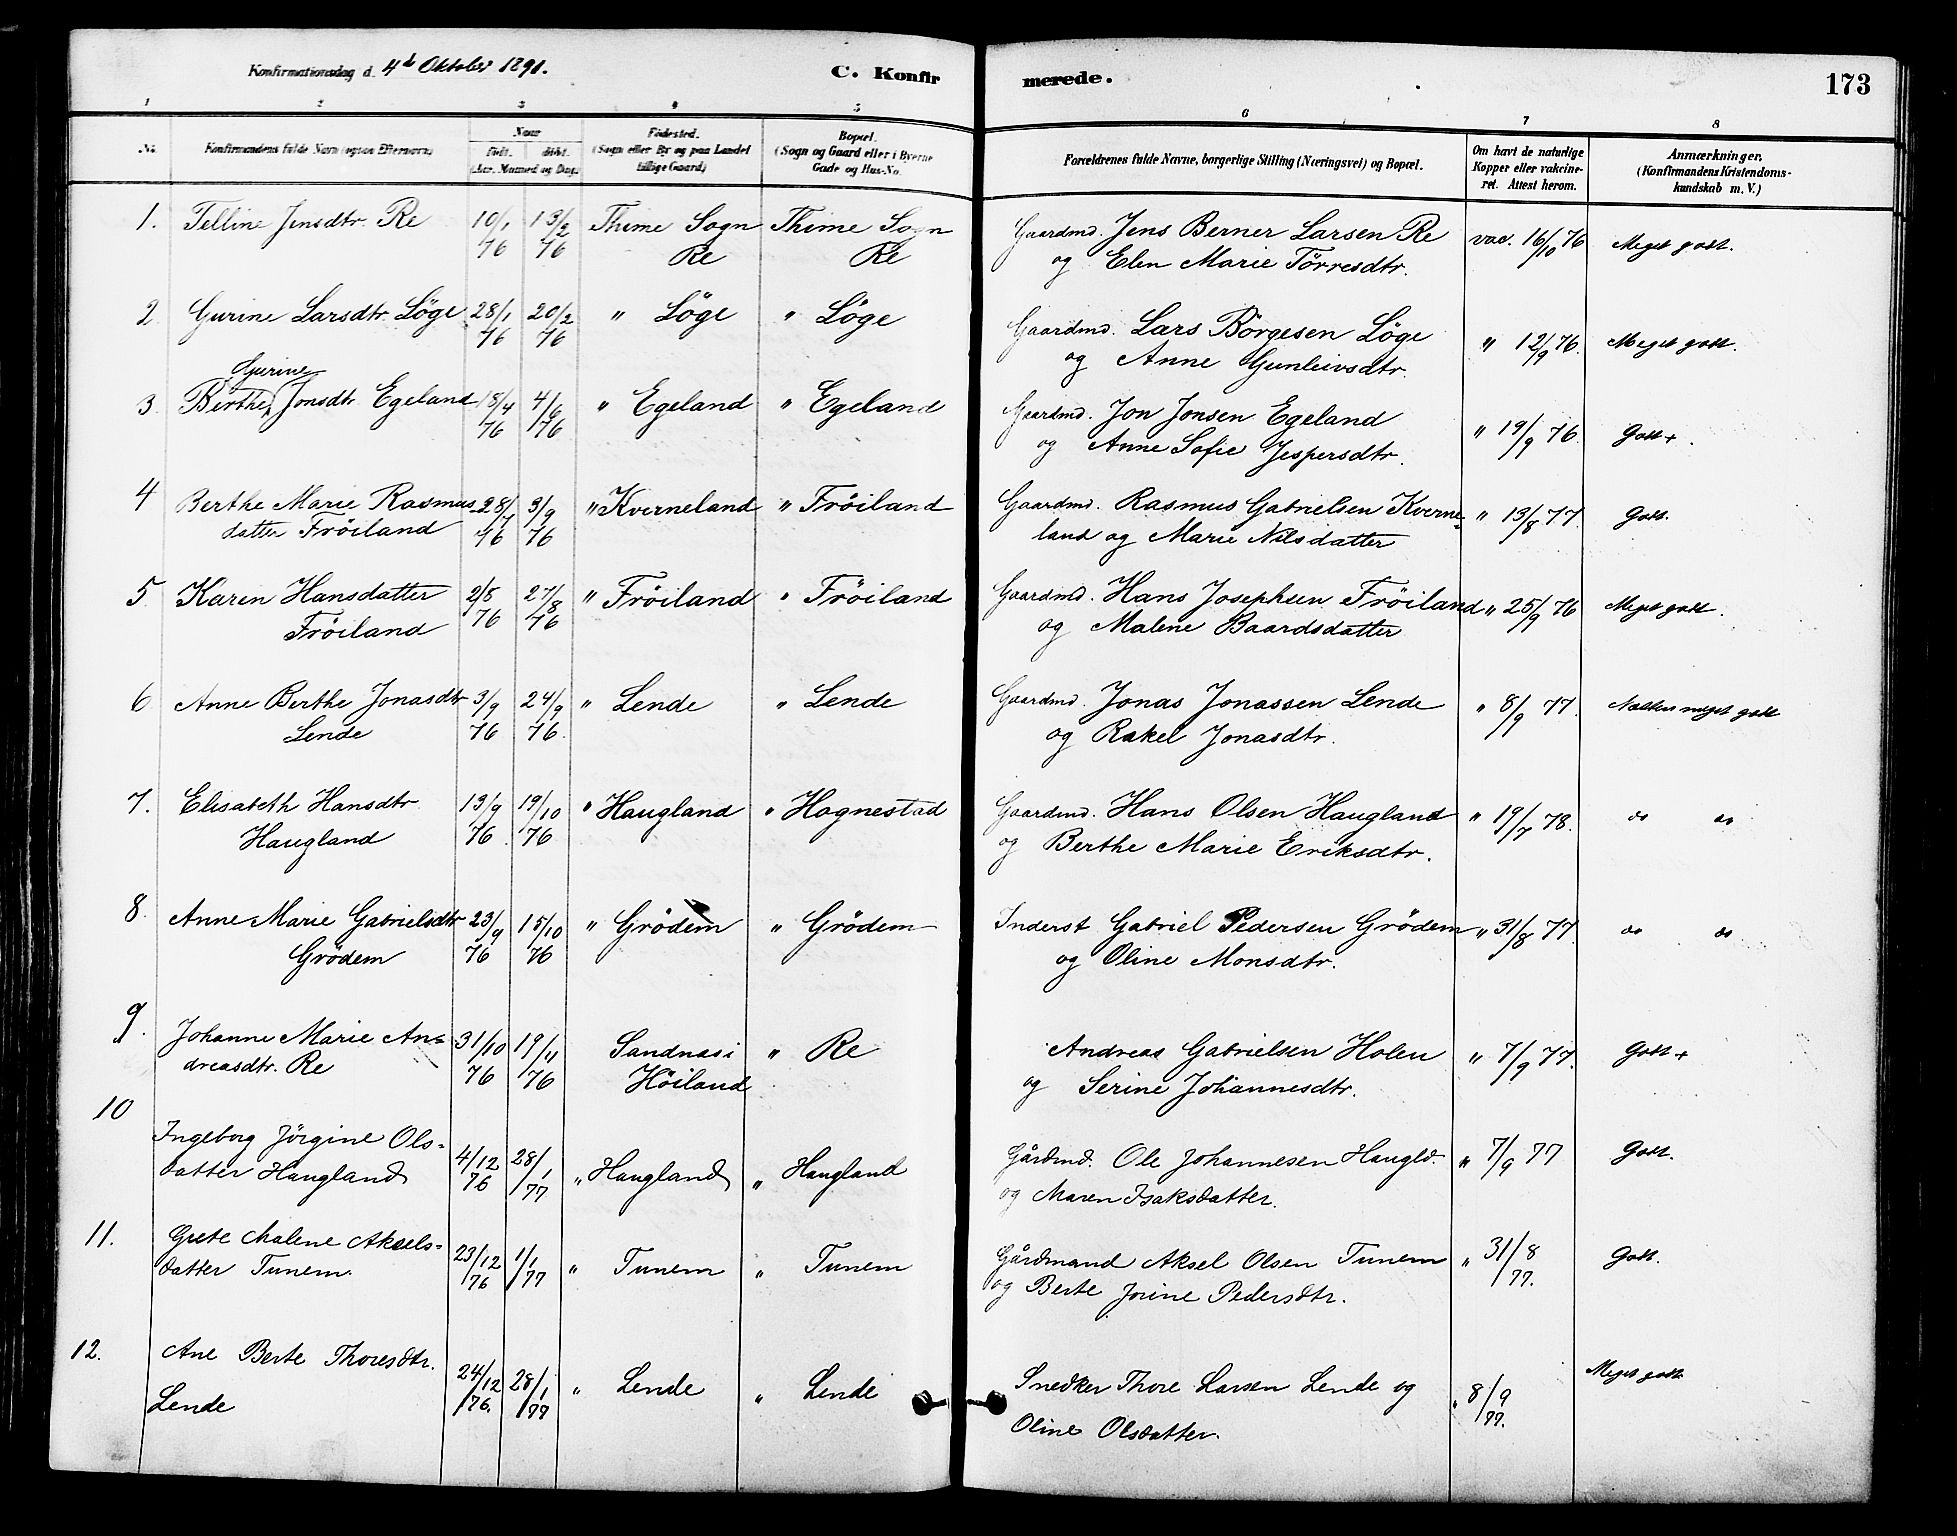 Konfirmationsdag d. 4de Oktober 1891.
C. Konfirmerede.
173
1 2 3 4 5 6 7 8
No. Konfirmandens fulde Navn (ogsaa Efternavn)
Naar
født. døbt.
(Aar, Maaned og Dag.)
Fødested.
(Sogn eller By og paa Landet
tillige Gaard)
Bopæl.
(Sogn og Gaard eller i Byerne
Gade og Hus-No.
Forældrenes fulde Navne, borgerlige Stilling (Næringsvei) og Bopæl.
Om havt de naturlige
Kopper eller vakcine-
ret. Attest herom.
Anmærkninger.
(Konfirmandens Kristendoms-
kundskab m. V.)
1. Telline Jensdtr. Re 10/1 76 13/2 76 Thime Sogn Re Thime Sogn Re Gaardmd. Jens Berner Larsen Re vac. 16/10 76 Meget godt.
og Elen Marie Törresdtr.
2 Gurine Larsdtr Löge 28/1 76 20/2 76 " Löge " Löge Gaardmd. Lars Börgesen Löge " 12/9 76. Meget godt.
og Anne Gunleivsdtr.
Gurine
3 Berthe Jonsdtr Egeland 18/4 76 4/6 76 " Egeland " Egeland Gaardmd. Jon Jonsen Egeland " 19/9 76. Godt +.
og Anne Sofie Jespersdtr.
4 Berthe Marie Rasmus- 28/7 76 3/9 76 " Kverneland " Fröiland Gaardmd. Rasmus Gabrielsen Kverne- " 13/8 77 Godt.
datter Fröiland land og Marie Nilsdatter
5. Karen Hansdatter 2/8 76 27/8 76 " Fröiland " Fröiland Gaardmd. Hans Josephsen Fröiland " 25/9 76 Meget godt.
Fröiland og Malene Baardsdatter
6 Anne Berthe Jonasdtr 3/9 76 24/9 76. " Lende " Lende Gaardmd. Jonas Jonassen Lende " 8/9 77. Næsten meget godt
Lende og Rakel Jonasdtr.
7. Elisabeth Hansdtr 13/9 76 19/10 76 " Haugland " Hognestad Gaardmd. Hans Olsen Haugland " 19/7 78. do do
Haugland og Berthe Marie Eriksdtr.
8. Anne Marie Gabrielsdtr 23/9 76 15/10 76 " Grödem " Grödem Inderst Gabriel Pedersen Grödem " 31/8 77. do do
Grödem og Oline Monsdtr.
9. Johanne Marie An- 31/10 76 19/11 76 Sandnas i Höiland " Re Andreas Gabrielsen Holen " 7/9 77. Godt +
dreasdtr. Re og Serine Johannesdtr.
10 Ingeborg Jörgine Ols- 4/12 76 28/1 77 " Haugland " Haugland Gårdmd. Ole Johannesen Haugld. " 7/9 77 Godt.
datter Haugland og Maren Isaksdatter.
11. Grete Malene Aksels- 23/12 76 1/1 77 " Tunem " Tunem Gårdmand Aksel Olsen Tunem " 31/8 77. Godt.
datter Tunem. og Berte Jorine Pedersdtr.
12. Ane Berte Thoresdtr. 24/12 76. 28/1 77 " Lende " Lende Snedker Thore Larsen Lende og " 8/9 77. Meget godt.
Lende Oline Olsdatter.